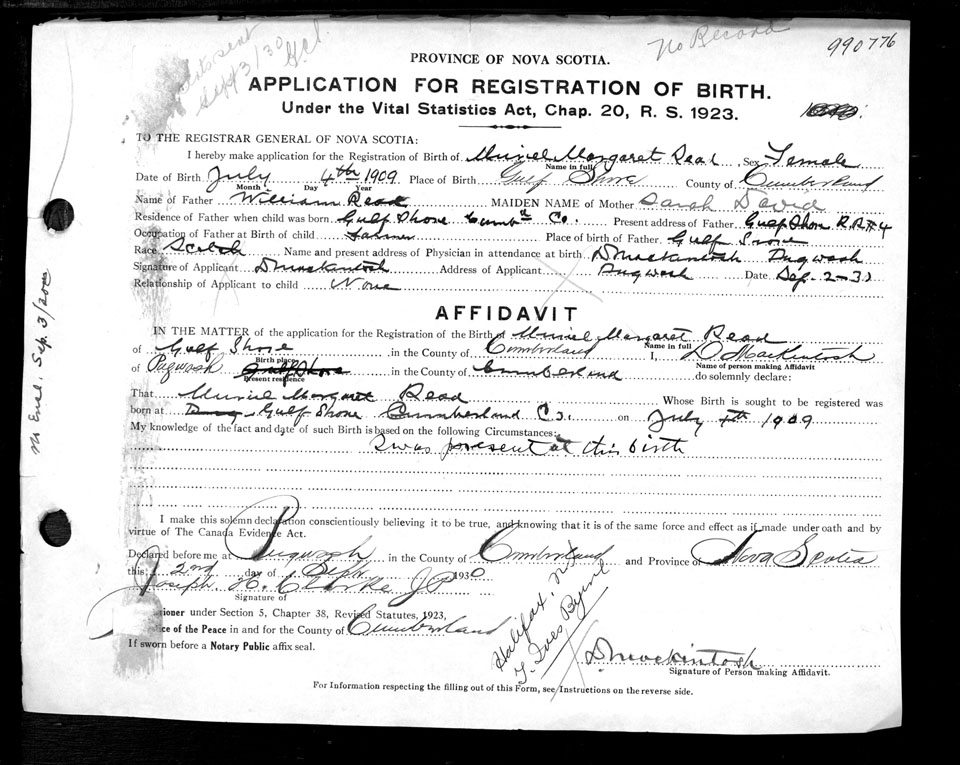 No Record
990776
Sept 3/30
PROVINCE OF NOVA SCOTIA.
APPLICATION FOR REGISTRATION OF BIRTH.
Under the Vital Statistics Act, Chap. 20, R. S. 1923.
TO THE REGISTRAR GENERAL OF NOVA SCOTIA:
I hereby make application for the Registration of Birth of Muriel Margaret Read, Sex Female
Name in full
Date of Birth July 4th 1909 Place of Birth Gulf Shore County of Cumberland
Month Day Year
Name of Father William Read MAIDEN NAME of Mother Sarah David
Residence of Father when child was born Gulf Shore Cumbd Co. Present address of Father Gulf Shore R.R#4
Occupation of Father at Birth of child Farmer Place of birth of Father Gulf Shore
Race Scotch Name and present address of Physician in attendance at birth D Mackintosh Pugwash
Signature of Applicant D Mackintosh Address of Applicant Pugwash Date Sep. 2-30
Relationship of Applicant to child None
AFFIDAVIT
IN THE MATTER of the application for the Registration of the Birth of Muriel Margaret Read
Name in full
of Gulf Shore in the County of Cumberland I, D Mackintosh
Birth place
Name of person making Affidavit
of Pugwash Gulf Shore in the County of Cumberland do solemnly declare:
Present residence
That Muriel Margaret Read Whose Birth is sought to be registered was
born at Gulf Shore Cumberland Co. on July 4th 1909
My knowledge of the fact and date of such Birth is based on the following Circumstances:
I was present at this birth
I make this solemn declaration conscientiously believing it to be true, and knowing that it is of the same force and effect as if made under oath and by
virtue of The Canada Evidence Act.
Declared before me at Pugwash in the County of Cumberland and Province of Nova Scotia
this 2nd day of Sept. 1930
Joseph H. Clarke JP
Signature of
sioner under Section 5, Chapter 38, Revised Statutes, 1923,
ce of the Peace in and for the County of Cumberland
If sworn before a Notary Public affix seal.
Halifax. N.S
D Mackintosh
Signature of Person making Affidavit.
For Information respecting the filling out of this Form, see Instructions on the reverse side.
Sep. 3/30